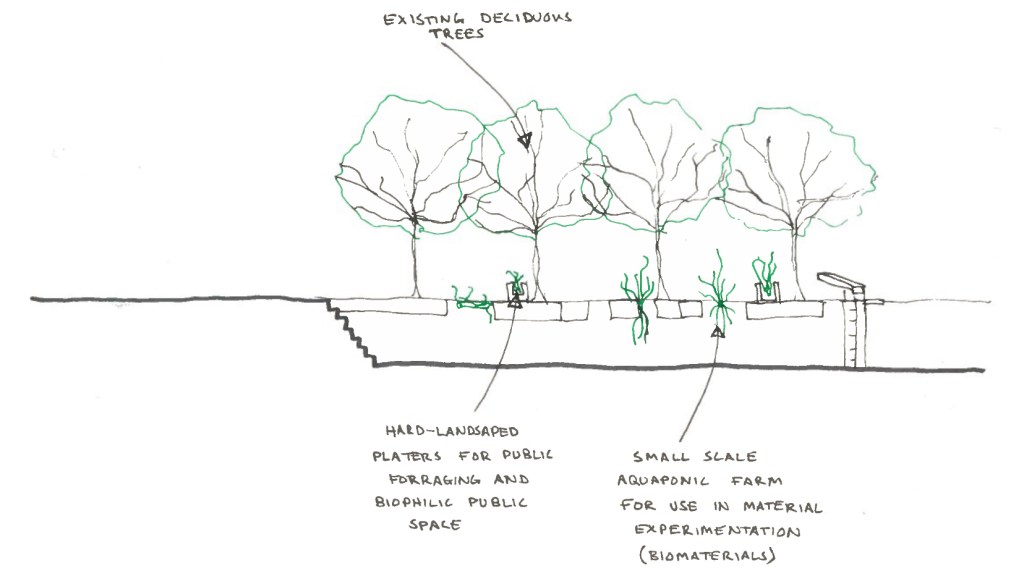 EXISTING DECIDUOUS
TREES
HARD-LANDSAPED
PLATERS FOR PUBLIC
FORRAGING AND
BIOPHILIC PUBLIC
SPACE
SMALL SCALE
AQUAPONIC FARM
FOR USE IN MATERIAL
EXPERIMENTATION
(BIOMATERIALS)